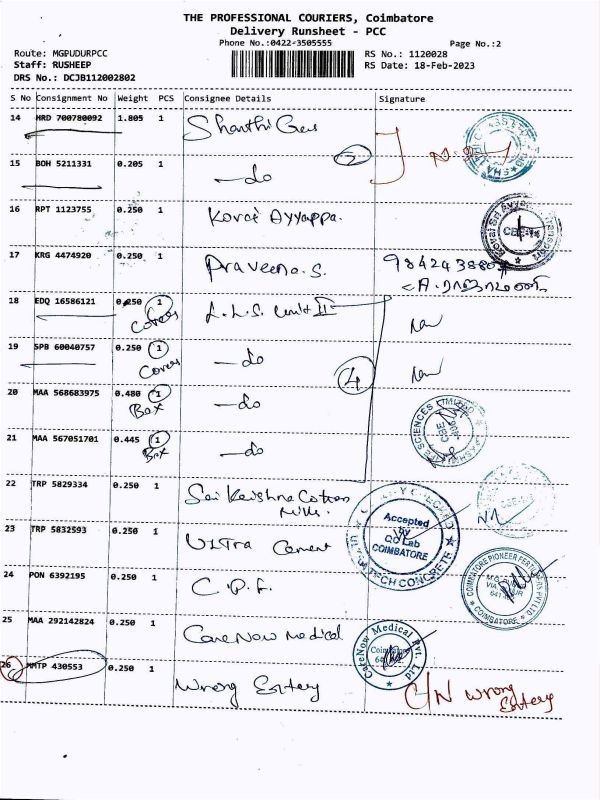 THE PROFESSIONAL COURIERS, Coimbatore
Delivery Runsheet - PCC
Phone No.:0422-3505555
Page No.:2
Route: MGPUDURPCC
RS No.: 1120028
Staff: RUSHEEP
RS Date: 18-Feb-2023
DRS No.: DCJB112002802
S No Consignment No Weight PCS Consignee Details Signature
14 HRD 700780092 1.805 1
15 BOH 5211331 0.205 1 — do
2
16 RPT 1123755 0.250 1 Kovai Ayyappa.
17 KRG 4474920 0.250 1 Praveena.S.
18 EDQ 16586121 0.250 1 L.L.S. Unit II
Covers
19 SPB 60040757 0.250 1 — do
Covers
4
20 MAA 568683975 0.480 1 — do
Box
21 MAA 567051701 0.445 1 — do
Box
SCIENCES LIMITED
22 TRP 5829334 0.250 1 Sai Krishna Cotton
Mills.
Accepted
by
QC Lab
COIMBATORE
TECH CONCRETE
23 TRP 5832593 0.250 1 Ultra Cement
24 PON 6392195 0.250 1 C.P.F.
COIMBATORE PIONEER FERTILIZERS PVT LTD
COIMBATORE
25 MAA 292142824 0.250 1 CareNow Medical
CareNow Medical Pvt. Ltd
26 MMTP 430553 0.250 1 Wrong Entery
C/N Wrong
Entery